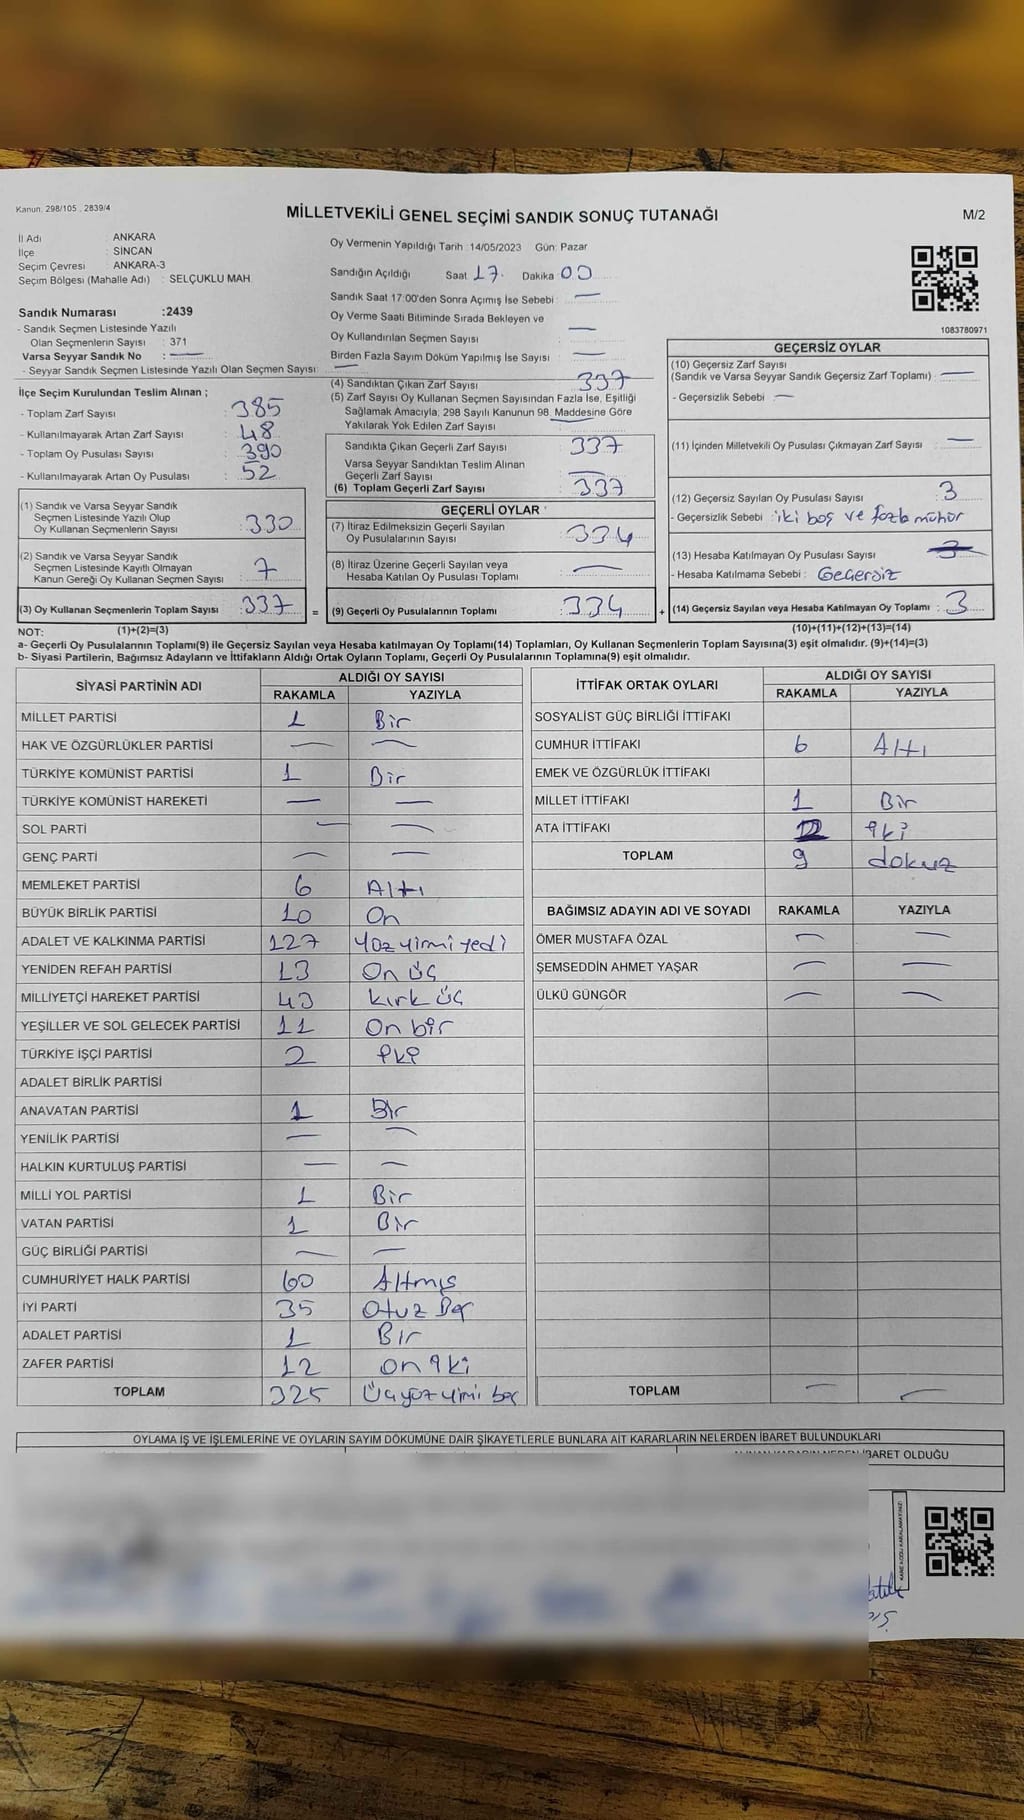 Kanun, 298/105 , 2839/4
MİLLETVEKİLİ GENEL SEÇİMİ SANDIK SONUÇ TUTANAĞI
M/2
İl Adı : ANKARA
İlçe : SİNCAN
Seçim Çevresi : ANKARA-3
Seçim Bölgesi (Mahalle Adı) : SELÇUKLU MAH.
Sandık Numarası :2439
- Sandık Seçmen Listesinde Yazılı
Olan Seçmenlerin Sayısı : 371
Varsa Seyyar Sandık No : —
- Seyyar Sandık Seçmen Listesinde Yazılı Olan Seçmen Sayısı: —
İlçe Seçim Kurulundan Teslim Alınan ;
- Toplam Zarf Sayısı : 385
- Kullanılmayarak Artan Zarf Sayısı : 48
- Toplam Oy Pusulası Sayısı : 390
- Kullanılmayarak Artan Oy Pusulası : 52
(1) Sandık ve Varsa Seyyar Sandık
Seçmen Listesinde Yazılı Olup
Oy Kullanan Seçmenlerin Sayısı : 330
(2) Sandık ve Varsa Seyyar Sandık
Seçmen Listesinde Kayıtlı Olmayan
Kanun Gereği Oy Kullanan Seçmen Sayısı : 7
(3) Oy Kullanan Seçmenlerin Toplam Sayısı : 337
(1)+(2)=(3)
Oy Vermenin Yapıldığı Tarih :14/05/2023 Gün: Pazar
Sandığın Açıldığı Saat 17 Dakika 00
Sandık Saat 17:00'den Sonra Açımış İse Sebebi : —
Oy Verme Saati Bitiminde Sırada Bekleyen ve
Oy Kullandırılan Seçmen Sayısı : —
Birden Fazla Sayım Döküm Yapılmış İse Sayısı : —
(4) Sandıktan Çıkan Zarf Sayısı : 337
(5) Zarf Sayısı Oy Kullanan Seçmen Sayısından Fazla İse, Eşitliği
Sağlamak Amacıyla, 298 Sayılı Kanunun 98. Maddesine Göre
Yakılarak Yok Edilen Zarf Sayısı : —
Sandıkta Çıkan Geçerli Zarf Sayısı : 337
Varsa Seyyar Sandıktan Teslim Alınan
Geçerli Zarf Sayısı : —
(6) Toplam Geçerli Zarf Sayısı : 337
GEÇERLİ OYLAR
(7) İtiraz Edilmeksizin Geçerli Sayılan
Oy Pusulalarının Sayısı : 334
(8) İtiraz Üzerine Geçerli Sayılan veya
Hesaba Katılan Oy Pusulası Toplamı : —
= (9) Geçerli Oy Pusulalarının Toplamı : 334
1083780971
GEÇERSİZ OYLAR
(10) Geçersiz Zarf Sayısı
(Sandık ve Varsa Seyyar Sandık Geçersiz Zarf Toplamı) : —
- Geçersizlik Sebebi : —
(11) İçinden Milletvekili Oy Pusulası Çıkmayan Zarf Sayısı : —
(12) Geçersiz Sayılan Oy Pusulası Sayısı : 3
- Geçersizlik Sebebi : iki boş ve fazla mühür
(13) Hesaba Katılmayan Oy Pusulası Sayısı : 3
- Hesaba Katılmama Sebebi : Geçersiz
+ (14) Geçersiz Sayılan veya Hesaba Katılmayan Oy Toplamı : 3
(10)+(11)+(12)+(13)=(14)
NOT:
a- Geçerli Oy Pusulalarının Toplamı(9) ile Geçersiz Sayılan veya Hesaba katılmayan Oy Toplamı(14) Toplamları, Oy Kullanan Seçmenlerin Toplam Sayısına(3) eşit olmalıdır. (9)+(14)=(3)
b- Siyasi Partilerin, Bağımsız Adayların ve İttifakların Aldığı Ortak Oyların Toplamı, Geçerli Oy Pusulalarının Toplamına(9) eşit olmalıdır.
SİYASİ PARTİNİN ADI ALDIĞI OY SAYISI
RAKAMLA YAZIYLA
MİLLET PARTİSİ 1 Bir
HAK VE ÖZGÜRLÜKLER PARTİSİ — —
TÜRKİYE KOMÜNİST PARTİSİ 1 Bir
TÜRKİYE KOMÜNİST HAREKETİ — —
SOL PARTİ — —
GENÇ PARTİ — —
MEMLEKET PARTİSİ 6 Altı
BÜYÜK BİRLİK PARTİSİ 10 On
ADALET VE KALKINMA PARTİSİ 127 Yüz yirmi yedi
YENİDEN REFAH PARTİSİ 13 On üç
MİLLİYETÇİ HAREKET PARTİSİ 43 kırk üç
YEŞİLLER VE SOL GELECEK PARTİSİ 11 On bir
TÜRKİYE İŞÇİ PARTİSİ 2 iki
ADALET BİRLİK PARTİSİ
ANAVATAN PARTİSİ 1 Bir
YENİLİK PARTİSİ — —
HALKIN KURTULUŞ PARTİSİ — —
MİLLİ YOL PARTİSİ 1 Bir
VATAN PARTİSİ 1 Bir
GÜÇ BİRLİĞİ PARTİSİ — —
CUMHURİYET HALK PARTİSİ 60 Altmış
İYİ PARTİ 35 Otuz Beş
ADALET PARTİSİ 1 Bir
ZAFER PARTİSİ 12 on iki
TOPLAM 325 Üçyüz yimi beş
İTTİFAK ORTAK OYLARI ALDIĞI OY SAYISI
RAKAMLA YAZIYLA
SOSYALİST GÜÇ BİRLİĞİ İTTİFAKI
CUMHUR İTTİFAKI 6 Altı
EMEK VE ÖZGÜRLÜK İTTİFAKI
MİLLET İTTİFAKI 1 Bir
ATA İTTİFAKI 2 iki
TOPLAM 9 dokuz
BAĞIMSIZ ADAYIN ADI VE SOYADI RAKAMLA YAZIYLA
ÖMER MUSTAFA ÖZAL — —
ŞEMSEDDİN AHMET YAŞAR — —
ÜLKÜ GÜNGÖR — —
TOPLAM — —
OYLAMA İŞ VE İŞLEMLERİNE VE OYLARIN SAYIM DÖKÜMÜNE DAİR ŞİKAYETLERLE BUNLARA AİT KARARLARIN NELERDEN İBARET BULUNDUKLARI
İBARET OLDUĞU
KARE KODU KARALAMAYINIZ!